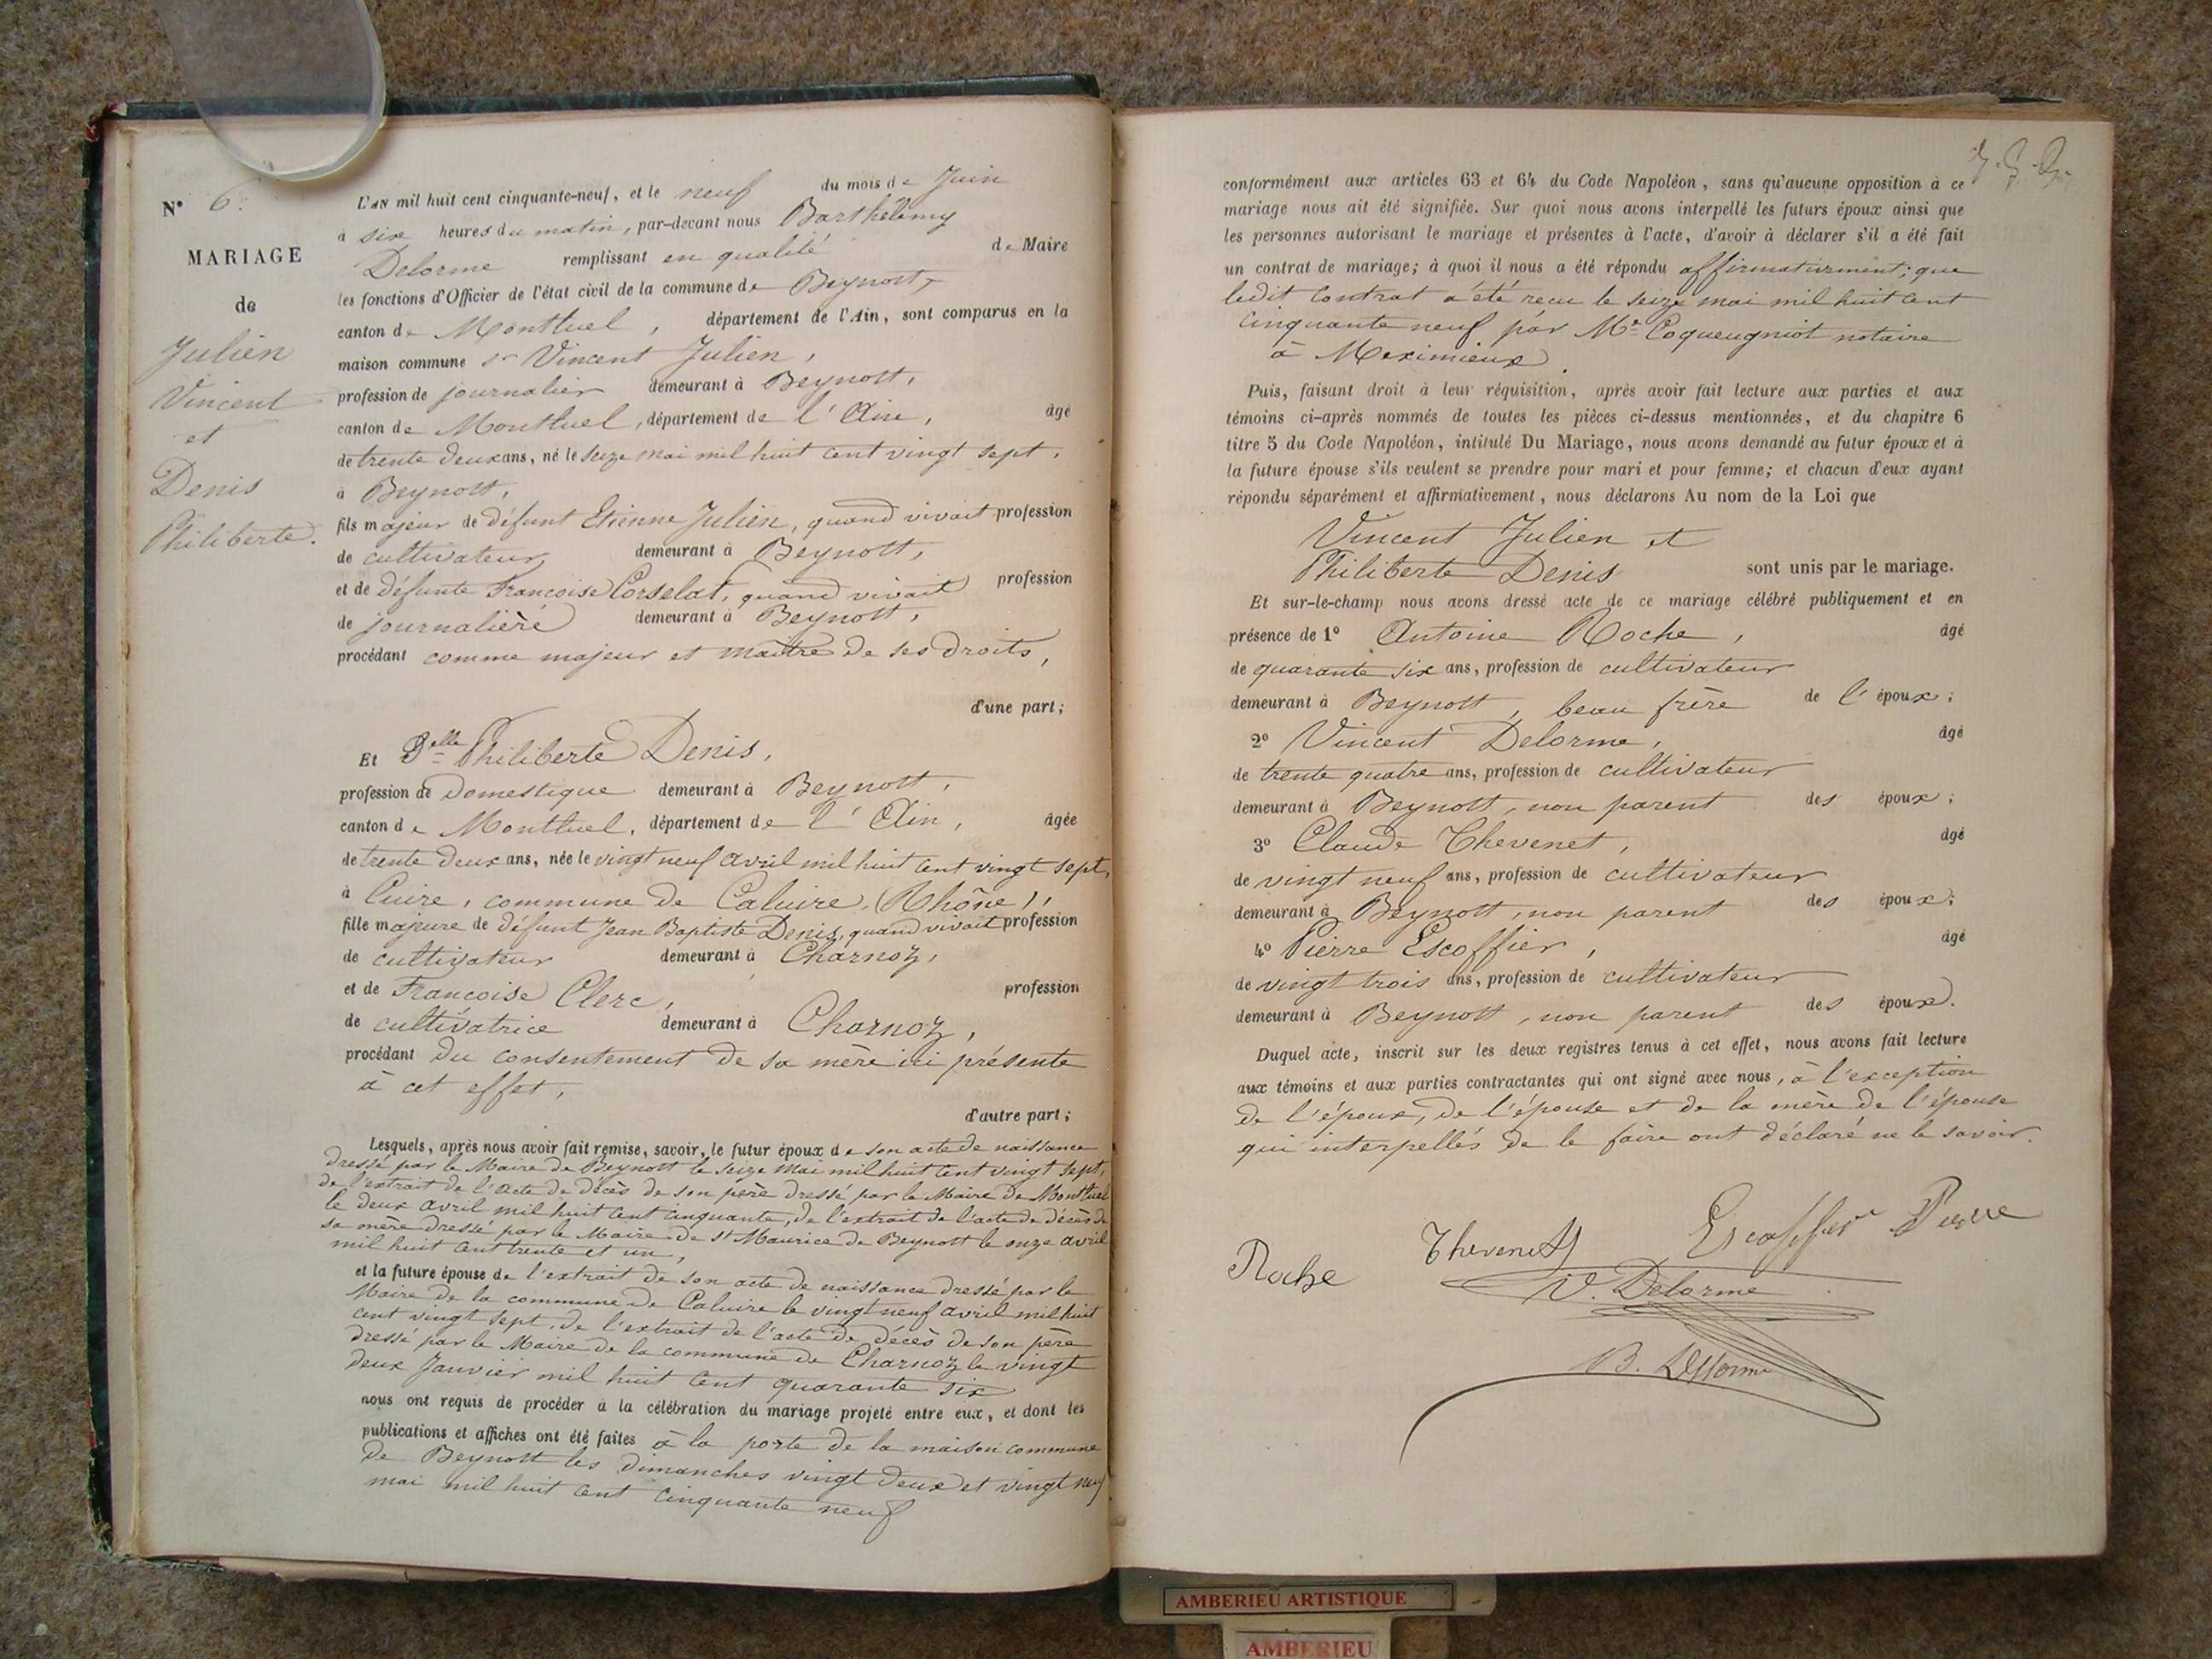 N° 6.
MARIAGE
de
Julien
Vincent
et
Denis
Philiberte.
L'AN mil huit cent cinquante-neuf, et le neuf du mois de Juin
à six heures du matin, par-devant nous Barthélemy
Delorme remplissant en qualité de Maire
les fonctions d'Officier de l'état civil de la commune de Beynost,
canton de Montluel, département de l'Ain, sont comparus en la
maison commune sr Vincent Julien,
profession de journalier demeurant à Beynost,
canton de Montluel, département de l'Ain, âgé
de trente deux ans, né le seize mai mil huit cent vingt sept,
à Beynost,
fils majeur de défunt Etienne Julien, quand vivait profession
de cultivateur demeurant à Beynost,
et de défunte Francoise Corselat, quand vivait profession
de journalière demeurant à Beynost,
procédant comme majeur et maître de ses droits,
d'une part;
Et Delle Philiberte Denis,
profession de domestique demeurant à Beynost,
canton de Montluel, département de l'Ain, âgée
de trente deux ans, née le vingt neuf avril mil huit cent vingt sept,
à Cuire, commune de Caluire, (Rhône),
fille majeure de défunt Jean Baptiste Denis, quand vivait profession
de cultivateur demeurant à Charnoz,
et de Francoise Clerc, profession
de cultivatrice demeurant à Charnoz,
procédant du consentement de sa mère ici présente
à cet effet,
d'autre part;
Lesquels, après nous avoir fait remise, savoir, le futur époux de son acte de naissance
dressé par le Maire de Beynost le seize mai mil huit cent vingt sept,
de l'extrait de l'acte de décès de son père dressé par le Maire de Montluel
le deux avril mil huit cent cinquante, de l'extrait de l'acte de décès de
sa mère dressé par le Maire de St Maurice de Beynost le onze avril
mil huit cent trente et un,
et la future épouse de l'extrait de son acte de naissance dressé par le
Maire de la commune de Caluire le vingt neuf avril mil huit
cent vingt sept, de l'extrait de l'acte de décès de son père
dressé par le Maire de la commune de Charnoz le vingt
deux Janvier mil huit cent quarante six
nous ont requis de procéder à la célébration du mariage projeté entre eux, et dont les
publications et affiches ont été faites à la porte de la maison commune
de Beynost les dimanches vingt deux et vingt neuf
mai mil huit cent cinquante neuf
conformément aux articles 63 et 64 du Code Napoléon, sans qu'aucune opposition à ce
mariage nous ait été signifiée. Sur quoi nous avons interpellé les futurs époux ainsi que
les personnes autorisant le mariage et présentes à l'acte, d'avoir à déclarer s'il a été fait
un contrat de mariage; à quoi il nous a été répondu affirmativement; que
ledit contrat a été recu le seize mai mil huit cent
cinquante neuf par Me Coqueugniot notaire
à Meximieux.
Puis, faisant droit à leur réquisition, après avoir fait lecture aux parties et aux
témoins ci-après nommés de toutes les pièces ci-dessus mentionnées, et du chapitre 6
titre 5 du Code Napoléon, intitulé Du Mariage, nous avons demandé au futur époux et à
la future épouse s'ils veulent se prendre pour mari et pour femme; et chacun d'eux ayant
répondu séparément et affirmativement, nous déclarons Au nom de la Loi que
Vincent Julien et
Philiberte Denis sont unis par le mariage.
Et sur-le-champ nous avons dressé acte de ce mariage célébré publiquement et en
présence de 1° Antoine Roche, âgé
de quarante six ans, profession de cultivateur
demeurant à Beynost, beau frère de l'époux;
2° Vincent Delorme, âgé
de trente quatre ans, profession de cultivateur
demeurant à Beynost, non parent des époux;
3° Claude Thevenet, âgé
de vingt neuf ans, profession de cultivateur
demeurant à Beynost, non parent des époux;
4° Pierre Escoffier, âgé
de vingt trois ans, profession de cultivateur
demeurant à Beynost, non parent des époux.
Duquel acte, inscrit sur les deux registres tenus à cet effet, nous avons fait lecture
aux témoins et aux parties contractantes qui ont signé avec nous, à l'exception
de l'époux, de l'épouse et de la mère de l'épouse
qui interpellés de le faire ont déclaré ne le savoir.
Roche Thevenet Escoffier Pierre
V. Delorme
B. Delorme
AMBERIEU ARTISTIQUE
AMBERIEU